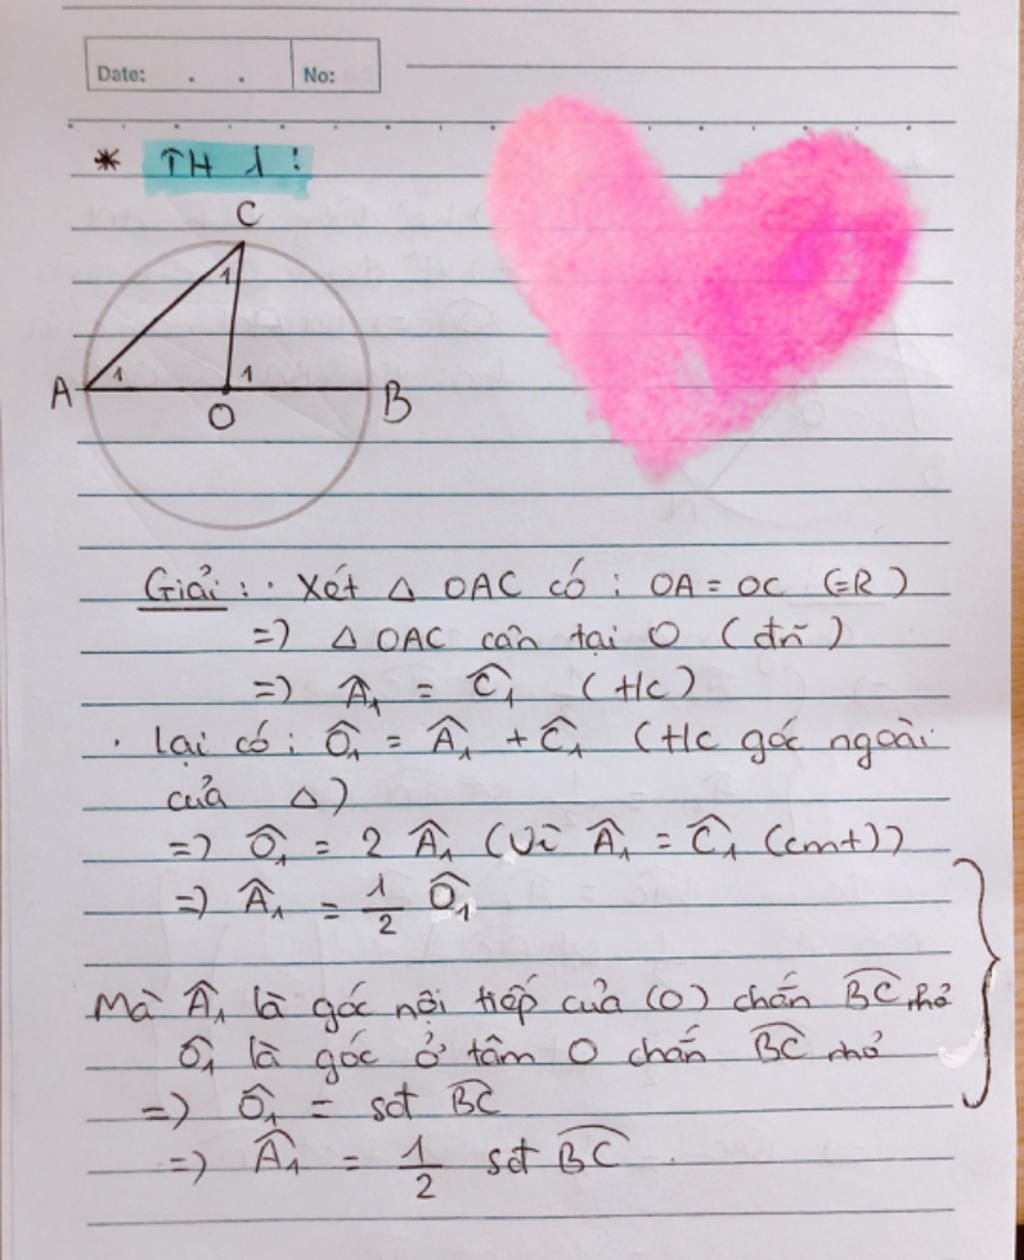 Date: . . No:
* TH 1 :
C
1
A 1 1 B
O
Giải : · Xét △ OAC có : OA = OC (=R)
=) △ OAC cân tại O (đn)
=) Â₁ = Ĉ₁ (t/c)
· Lại có : Ô₁ = Â₁ + Ĉ₁ (t/c góc ngoài
của △)
=) Ô₁ = 2 Â₁ (Vì Â₁ = Ĉ₁ (cmt))
=) Â₁ = 1/2 Ô₁
Mà Â₁ là góc nội tiếp của (O) chắn B͡C nhỏ
Ô₁ là góc ở tâm O chắn B͡C nhỏ
=) Ô₁ = sđ B͡C
=) Â₁ = 1/2 sđ B͡C .